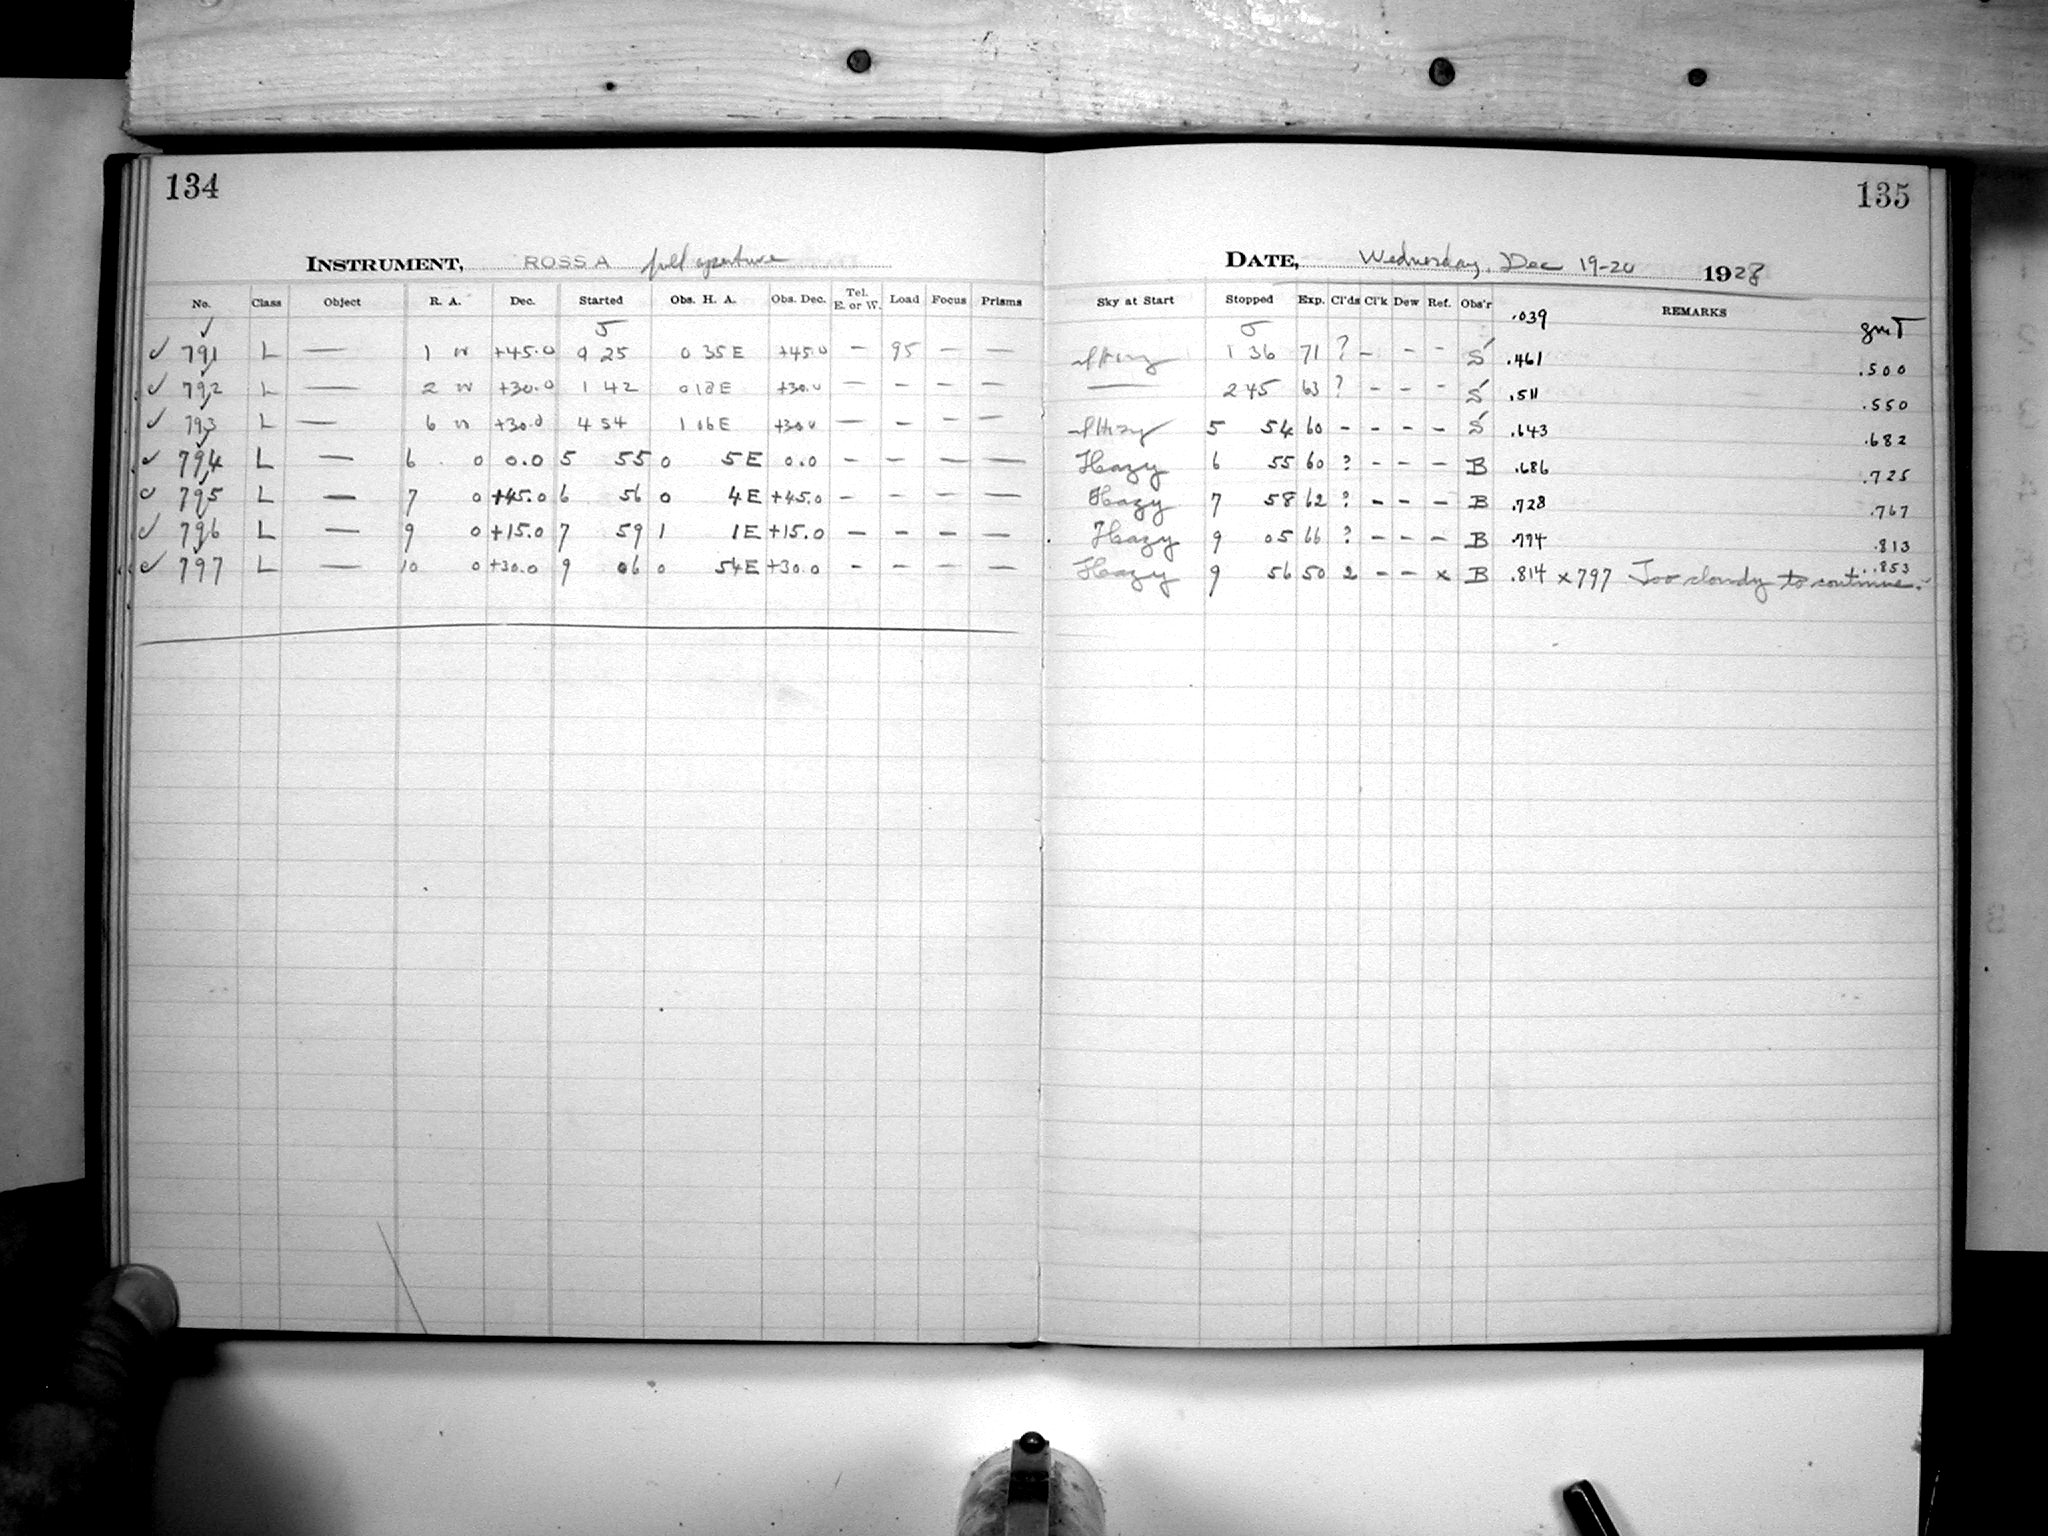 134
INSTRUMENT, ROSS A full aperture
No. Class Object R. A. Dec. Started Obs. H. A. Obs. Dec. Tel. E. or W. Load Focus Prisms
✓ 791 L — 1 +45.0 0 25 0 35 E +45.0 — 95 — —
✓ 792 L — 2 +30.0 1 42 0 18 E +30.0 — - - -
✓ 793 L — 6 +30.0 4 54 1 06 E +30.0 — - - —
✓ 794 L — 6 0 0.0 5 55 0 5 E 0.0 - - — —
✓ 795 L — 7 0 +45.0 6 56 0 4 E +45.0 - - - —
✓ 796 L — 9 0 +15.0 7 59 1 1 E +15.0 - - - —
✓ 797 L — 10 0 +30.0 9 06 0 54 E +30.0 - - - —
135
DATE, Wednesday, Dec 19-20 1928
Sky at Start Stopped Exp. Cl'ds Cl'k Dew Ref. Obs'r .039 REMARKS GMT
1 36 71 ? - - - S .461 .500
— 2 45 63 ? - - - S .511 .550
5 54 60 - - - - S .643 .682
Hazy 6 55 60 ? - - - B .686 .725
Hazy 7 58 62 ? - - - B .728 .767
Hazy 9 05 66 ? - - - B .774 .813
Hazy 9 56 50 2 - - x B .814 x 797 Too cloudy to continue. .853